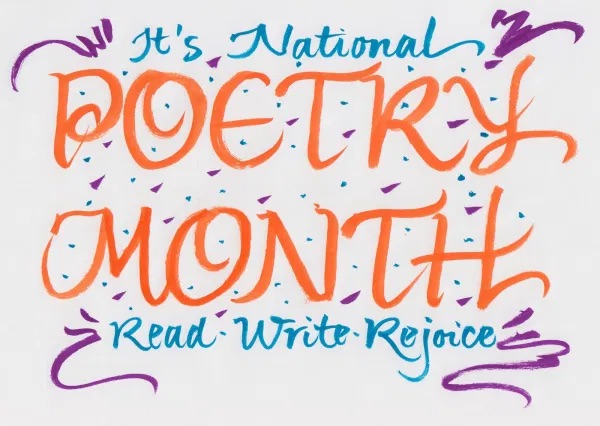 It's National
POETRY
MONTH
Read·Write·Rejoice